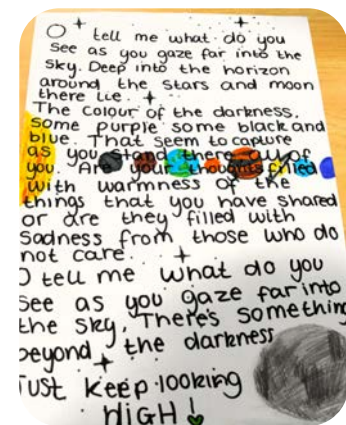 O tell me what do you
see as you gaze far into the
sky. Deep into the horizon
around the stars and moon
there lie.
The colour of the darkness,
some purple some black and
blue. That seem to capture
as you stand there all of
you. Are your thoughts filled
with warmness of the
things that you have shared
or are they filled with
sadness from those who do
not care.
O tell me what do you
see as you gaze far into
the sky, There's something
beyond the darkness
Just keep looking
HiGH!